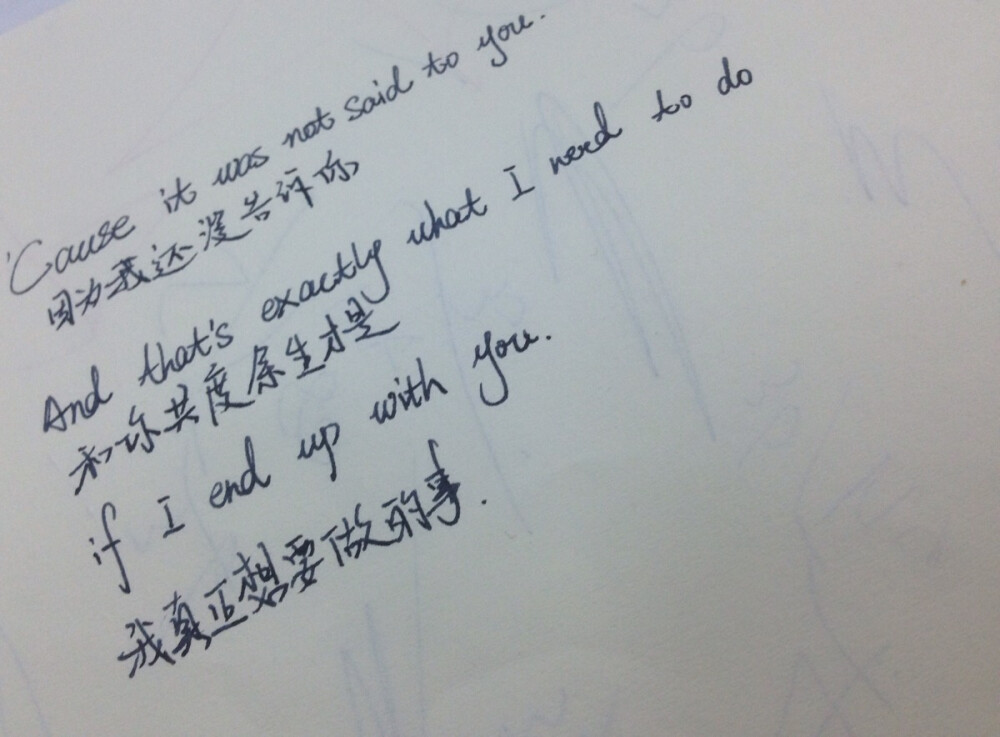 'Cause it was not said to you.
因为我还没告诉你
And that's exactly what I need to do
和你共度余生才是
if I end up with you.
我真正想要做的事.